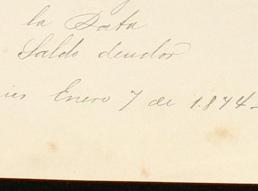 la Data
Saldo deudor
Enero 7 de 1874